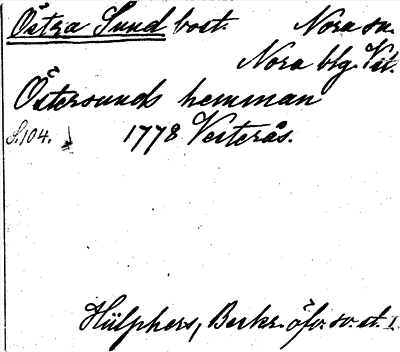 Östra Sund bost. Nora sn.
Nora blg. Vst.
Östersunds hemman
S. 104. 1778 Vesterås.
Hülphers, Beskr. öfv. sv. st. I.